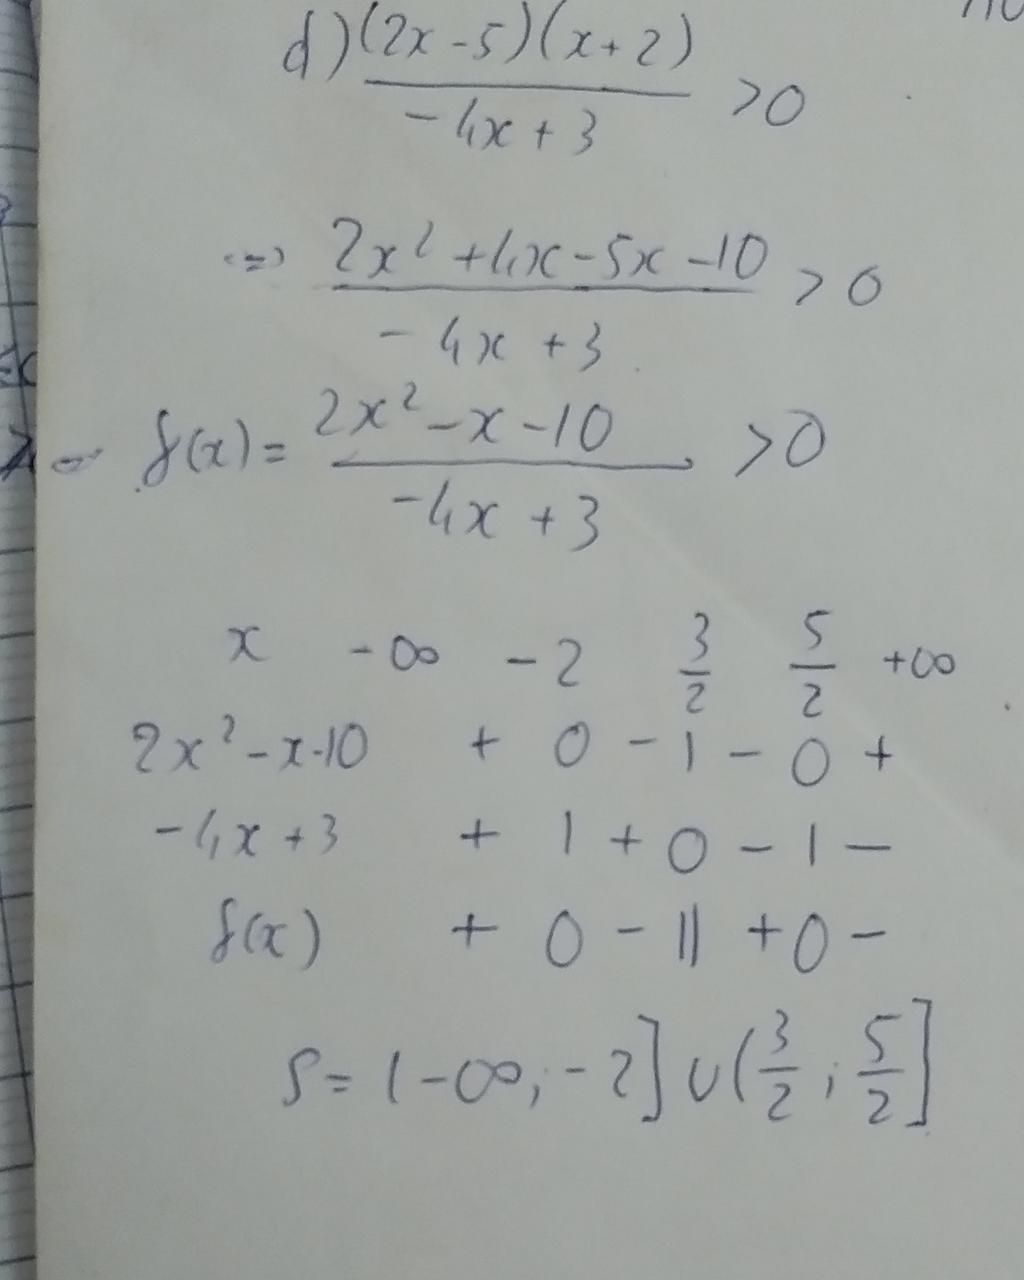 d) (2x-5)(x+2) / -4x+3 >0
<=> 2x² +4x-5x-10 / -4x+3 > 0
f(x) = 2x²-x-10 / -4x+3 >0
x -∞ -2 3/2 5/2 +∞
2x²-x-10 + 0 - | - 0 +
-4x+3 + | + 0 - | -
f(x) + 0 - || + 0 -
S= (-∞;-2] ∪ (3/2 ; 5/2]